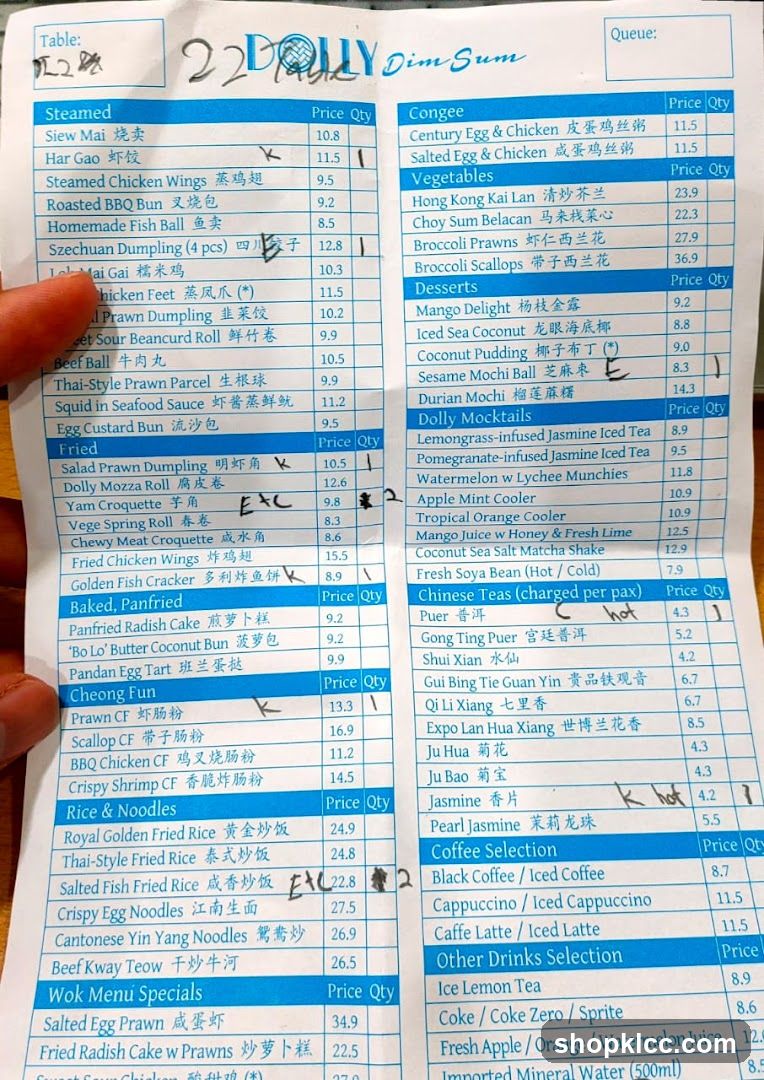 Table:
22 Table
DOLLY Dim Sum
Queue:
Steamed Price Qty
Siew Mai 烧卖 10.8
Har Gao 虾饺 K 11.5 1
Steamed Chicken Wings 蒸鸡翅 9.5
Roasted BBQ Bun 叉烧包 9.2
Homemade Fish Ball 鱼卖 8.5
Szechuan Dumpling (4 pcs) 四川饺子 E 12.8 1
Mai Gai 糯米鸡 10.3
Chicken Feet 蒸凤爪 (*) 11.5
Prawn Dumpling 韭菜饺 10.2
Sour Beancurd Roll 鲜竹卷 9.9
Beef Ball 牛肉丸 10.5
Thai-Style Prawn Parcel 生根球 9.9
Squid in Seafood Sauce 虾酱蒸鲜鱿 11.2
Egg Custard Bun 流沙包 9.5
Fried Price Qty
Salad Prawn Dumpling 明虾角 K 10.5 1
Dolly Mozza Roll 腐皮卷 12.6
Yam Croquette 芋角 E+C 9.8 2
Vege Spring Roll 春卷 8.3
Chewy Meat Croquette 咸水角 8.6
Fried Chicken Wings 炸鸡翅 15.5
Golden Fish Cracker 多利炸鱼饼 K 8.9 1
Baked, Panfried Price Qty
Panfried Radish Cake 煎萝卜糕 9.2
'Bo Lo' Butter Coconut Bun 菠萝包 9.2
Pandan Egg Tart 班兰蛋挞 9.9
Cheong Fun Price Qty
Prawn CF 虾肠粉 K 13.3 1
Scallop CF 带子肠粉 16.9
BBQ Chicken CF 鸡叉烧肠粉 11.2
Crispy Shrimp CF 香脆炸肠粉 14.5
Rice & Noodles Price Qty
Royal Golden Fried Rice 黄金炒饭 24.9
Thai-Style Fried Rice 泰式炒饭 24.8
Salted Fish Fried Rice 咸香炒饭 E+C 22.8 2
Crispy Egg Noodles 江南生面 27.5
Cantonese Yin Yang Noodles 鸳鸯炒 26.9
Beef Kway Teow 干炒牛河 26.5
Wok Menu Specials Price Qty
Salted Egg Prawn 咸蛋虾 34.9
Fried Radish Cake w Prawns 炒萝卜糕 22.5
Sweet Sour Chicken 酸甜鸡 (*) 27.9
Congee Price Qty
Century Egg & Chicken 皮蛋鸡丝粥 11.5
Salted Egg & Chicken 咸蛋鸡丝粥 11.5
Vegetables Price Qty
Hong Kong Kai Lan 清炒芥兰 23.9
Choy Sum Belacan 马来栈菜心 22.3
Broccoli Prawns 虾仁西兰花 27.9
Broccoli Scallops 带子西兰花 36.9
Desserts Price Qty
Mango Delight 杨枝金露 9.2
Iced Sea Coconut 龙眼海底椰 8.8
Coconut Pudding 椰子布丁 (*) 9.0
Sesame Mochi Ball 芝麻枣 E 8.3 1
Durian Mochi 榴莲麻糬 14.3
Dolly Mocktails Price Qty
Lemongrass-infused Jasmine Iced Tea 8.9
Pomegranate-infused Jasmine Iced Tea 9.5
Watermelon w Lychee Munchies 11.8
Apple Mint Cooler 10.9
Tropical Orange Cooler 10.9
Mango Juice w Honey & Fresh Lime 12.5
Coconut Sea Salt Matcha Shake 12.9
Fresh Soya Bean (Hot / Cold) 7.9
Chinese Teas (charged per pax) Price Qty
Puer 普洱 C hot 4.3 1
Gong Ting Puer 宫廷普洱 5.2
Shui Xian 水仙 4.2
Gui Bing Tie Guan Yin 贵品铁观音 6.7
Qi Li Xiang 七里香 6.7
Expo Lan Hua Xiang 世博兰花香 8.5
Ju Hua 菊花 4.3
Ju Bao 菊宝 4.3
Jasmine 香片 K hot 4.2 1
Pearl Jasmine 茉莉龙珠 5.5
Coffee Selection Price Qty
Black Coffee / Iced Coffee 8.7
Cappuccino / Iced Cappuccino 11.5
Caffe Latte / Iced Latte 11.5
Other Drinks Selection Price
Ice Lemon Tea 8.9
Coke / Coke Zero / Sprite 8.6
Fresh Apple / Juice
Imported Mineral Water (500ml) 8.5
shopklcc.com